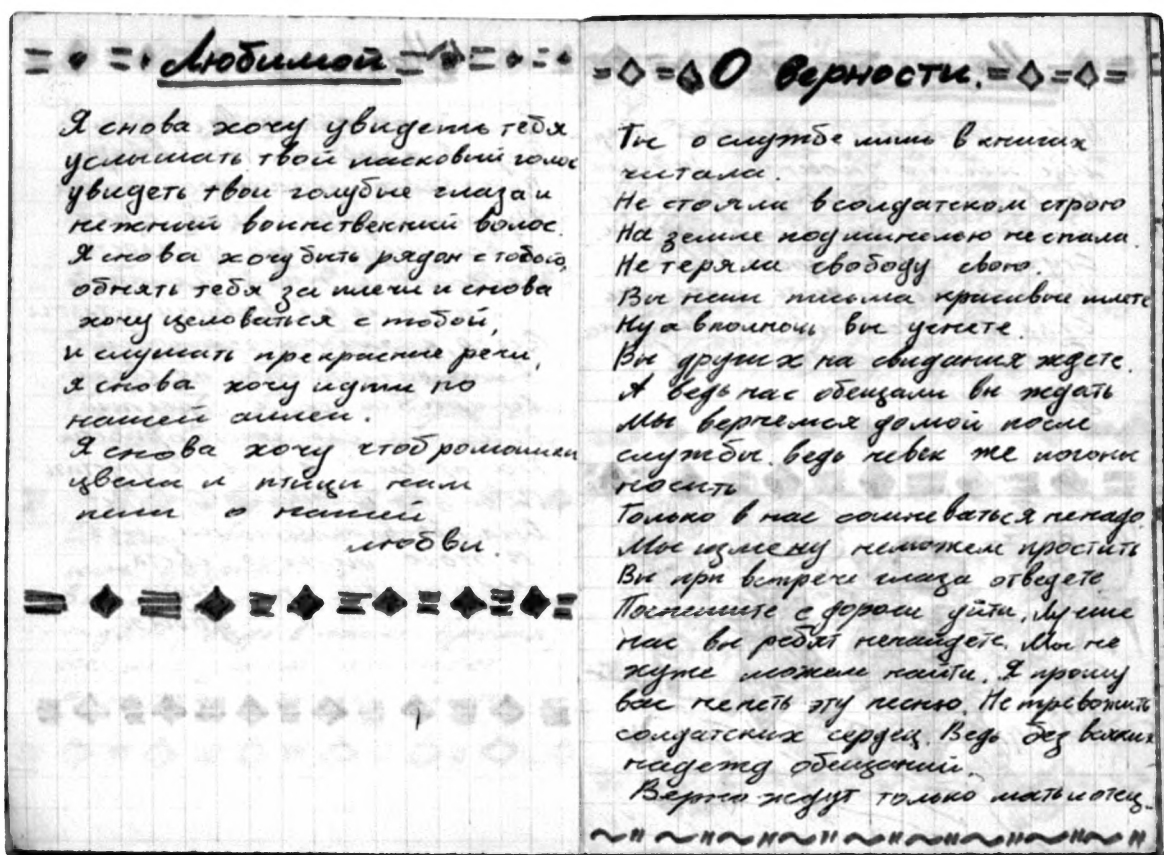 Любимой
Я снова хочу увидеть тебя
услышать твой ласковый голос
увидеть твои голубые глаза и
нежний воинственний волос.
Я снова хочу быть рядом с тобою,
обнять тебя за плечи и снова
хочу целоваться с тобой,
и слушать прекрасние речи,
я снова хочу идти по
нашей аллеи.
Я снова хочу чтоб ромашки
цвели и птици нам
пели о нашей
любви.
О верности.
Ты о службе лишь в книгах
читала.
Не стояли в солдатском строю
На земле под шинелью не спала.
Не теряли свободу свою.
Вы нам письма красивые шлете
Ну а вполночь вы уснете.
Вы других на свидания ждете.
А ведь нас обещали вы ждать
Мы вернемся домой после
службы. ведь невек же погоны
носить
Только в нас сомневаться ненадо.
Мы измену неможем простить
Вы при встрече глаза отведете
Поспешите с дороги уйти. Лучше
нас вы ребят ненайдете. Мы не
хуже можем найти. Я прошу
вас непеть эту песню. Не тревожить
солдатских сердец. Ведь без всяких
надежд обещаний.
Верно ждут только мать и отец.